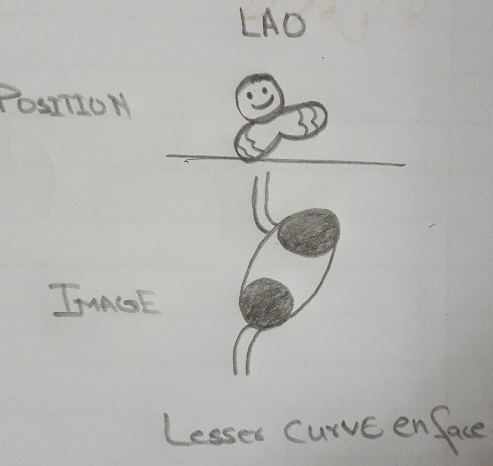 LAO
POSITION
IMAGE
Lesser curve enface